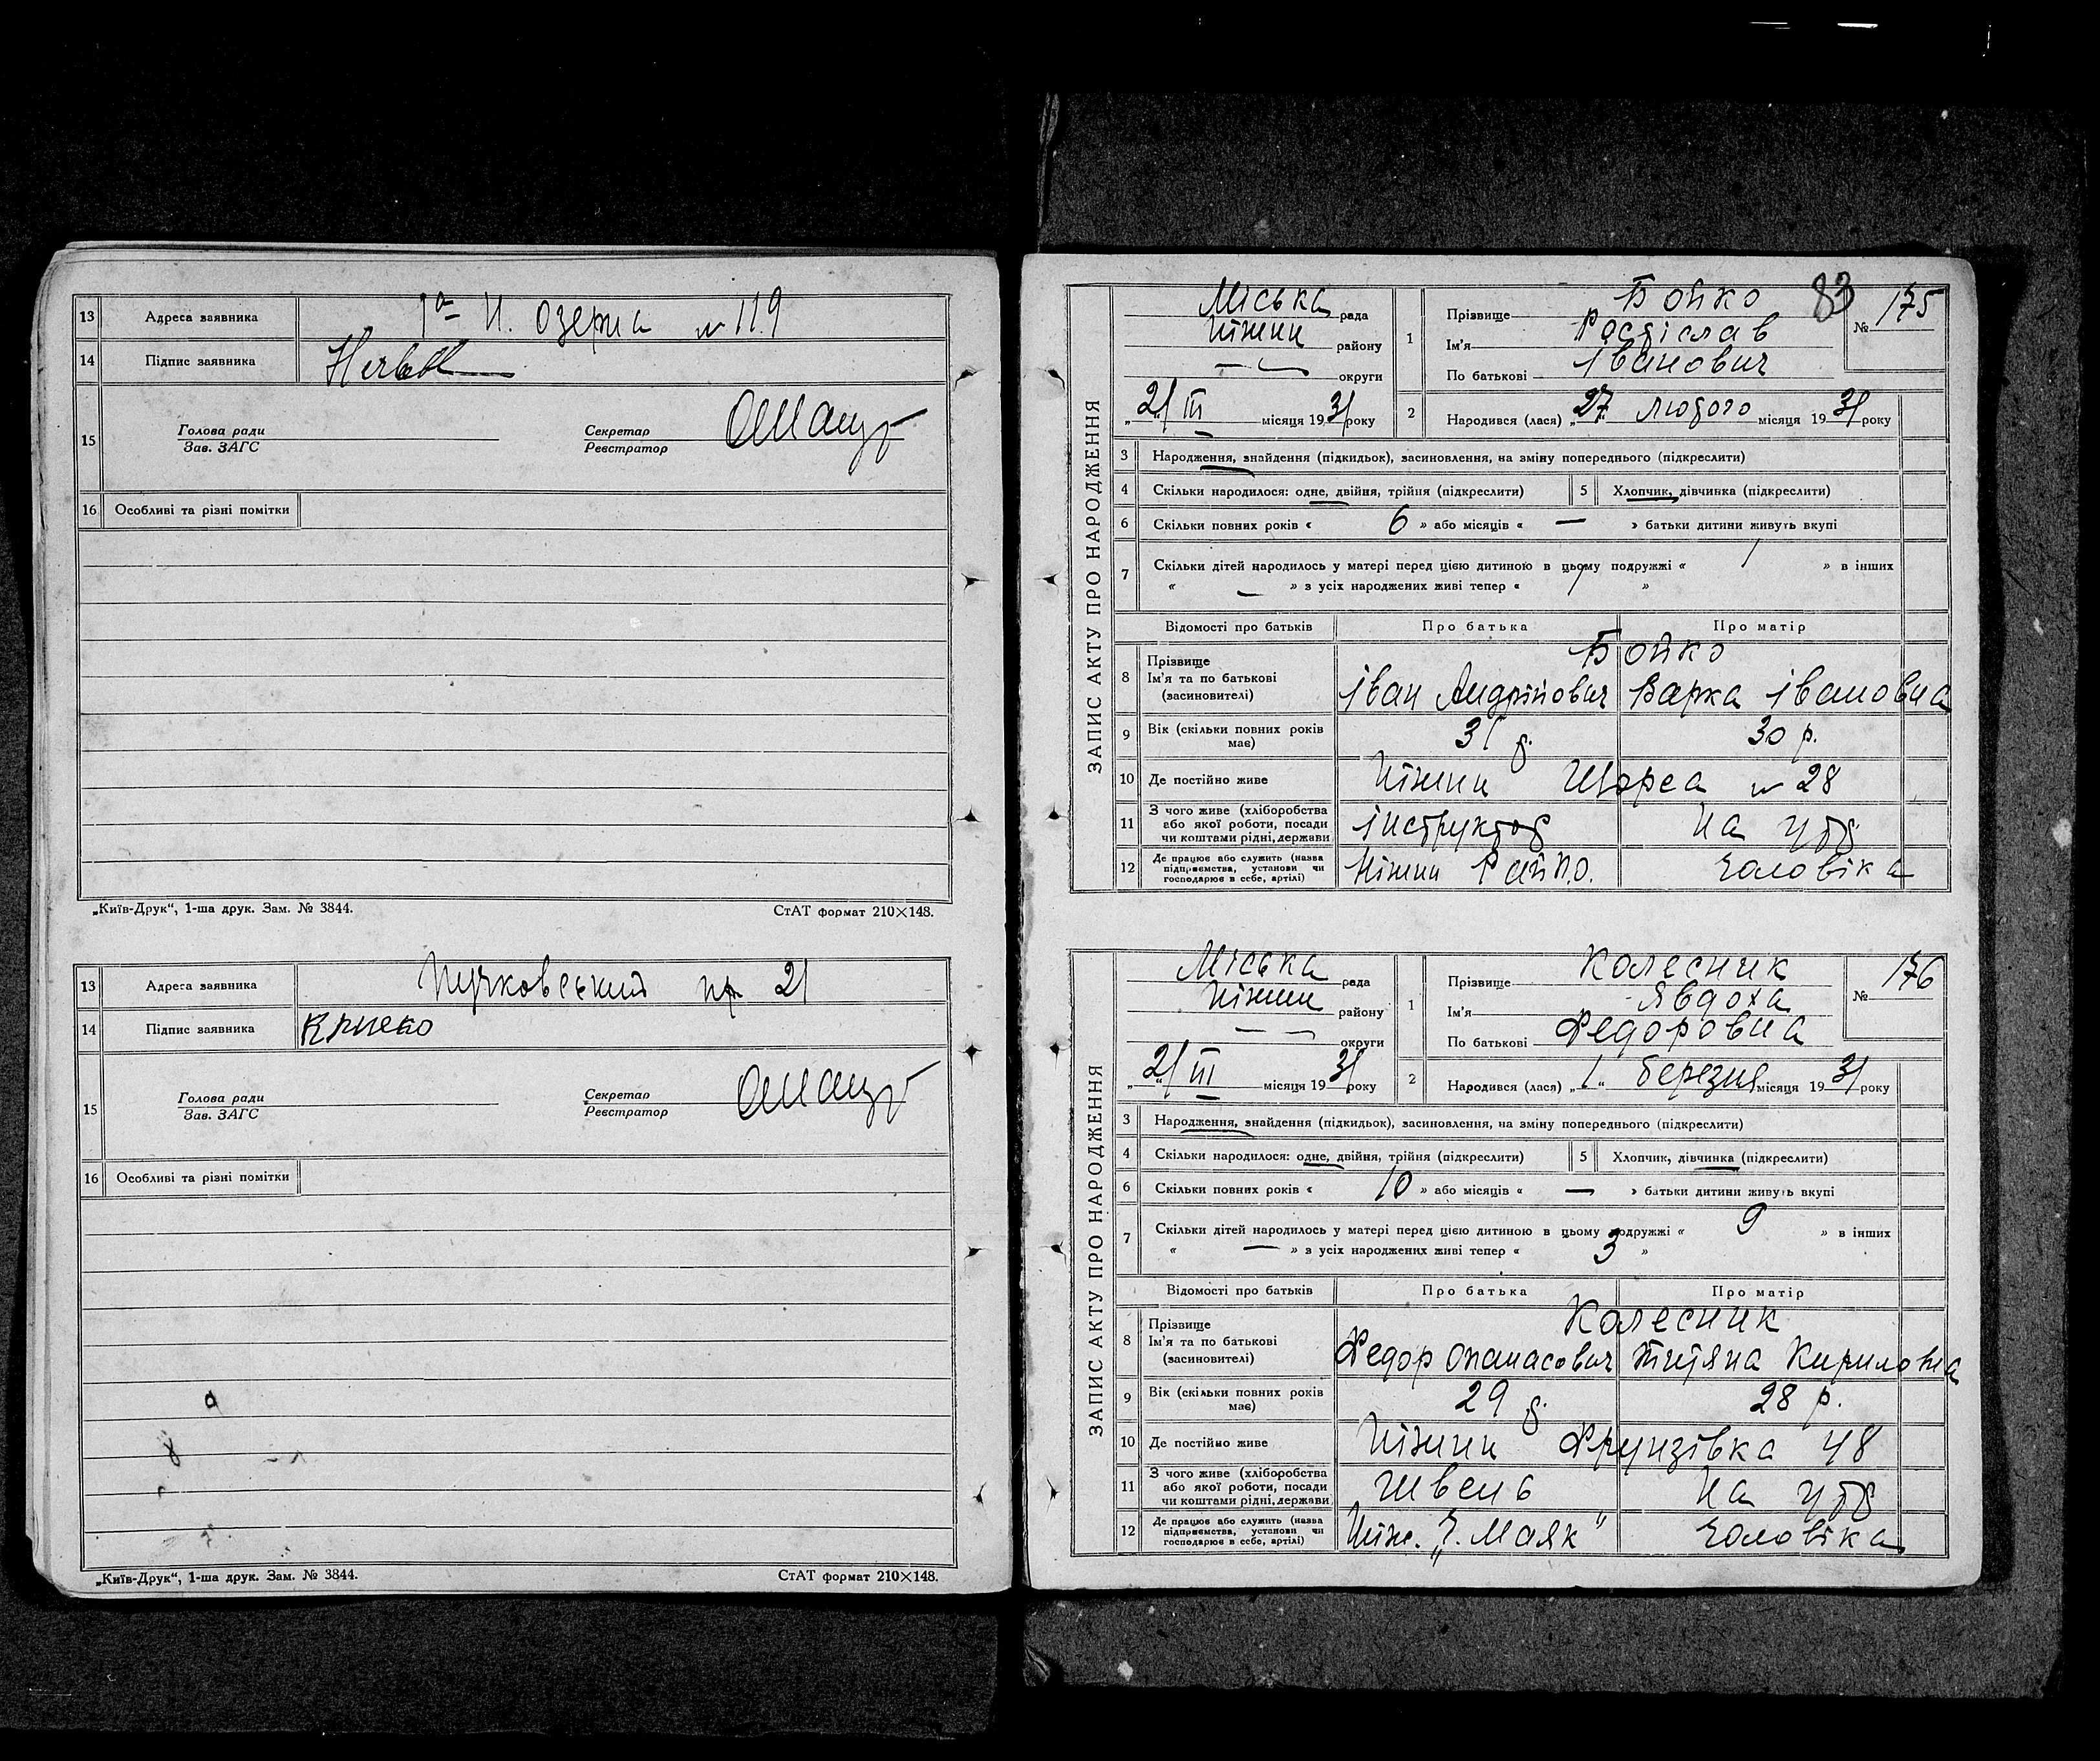 13 Адреса заявника 1а Н. Озерна № 119
14 Підпис заявника
15 Голова ради Секретар
Зав. ЗАГС Реєстратор
16 Особливі та різні помітки
„Київ-Друк“, 1-ша друк. Зам. № 3844. СтАТ формат 210×148.
13 Адреса заявника 21
14 Підпис заявника
15 Голова ради Секретар
Зав. ЗАГС Реєстратор
16 Особливі та різні помітки
„Київ-Друк“, 1-ша друк. Зам. № 3844. СтАТ формат 210×148.
83
ЗАПИС АКТУ ПРО НАРОДЖЕННЯ
Міська рада
Ніжин району
— — округи
„21 III місяця 1931 року
1 Прізвище Бойко № 175
Ім'я Ростіслав
По батькові Іванович
2 Народився (лася) „27 лютого місяця 1931 року
3 Народження, знайдення (підкидьок), засиновлення, на зміну попереднього (підкреслити)
4 Скільки народилося: одне, двійня, трійня (підкреслити) 5 Хлопчик, дівчинка (підкреслити)
6 Скільки повних років « 6 » або місяців « — » батьки дитини живуть вкупі
7 Скільки дітей народилось у матері перед цією дитиною в цьому подружжі « 1 » в інших
« — » з усіх народжених живі тепер « 1 »
Відомості про батьків Про батька Про матір
8 Прізвище Бойко
Ім'я та по батькові Іван Андрійович Варка Івановна
(засиновителі)
9 Вік (скільки повних років має) 31 р. 30 р.
10 Де постійно живе Ніжин Щорса № 28
11 З чого живе (хліборобства або якої роботи, посади чи коштами рідні, держави інструктор На утр.
12 Де працює або служить (назва підприємства, установи чи господарює в себе, артілі) Ніжин Рай П.О. чоловіка
ЗАПИС АКТУ ПРО НАРОДЖЕННЯ
Міська рада
Ніжин району
— — округи
„21 III місяця 1931 року
1 Прізвище Колесник № 176
Ім'я Явдоха
По батькові Федоровна
2 Народився (лася) „1“ березня місяця 1931 року
3 Народження, знайдення (підкидьок), засиновлення, на зміну попереднього (підкреслити)
4 Скільки народилося: одне, двійня, трійня (підкреслити) 5 Хлопчик, дівчинка (підкреслити)
6 Скільки повних років « 10 » або місяців « — » батьки дитини живуть вкупі
7 Скільки дітей народилось у матері перед цією дитиною в цьому подружжі « 9 » в інших
« — » з усіх народжених живі тепер « 3 »
Відомості про батьків Про батька Про матір
8 Прізвище Колесник
Ім'я та по батькові Федор Опанасович Титяна Кириловна
(засиновителі)
9 Вік (скільки повних років має) 29 р. 28 р.
10 Де постійно живе Ніжин Фрунзівка 48
11 З чого живе (хліборобства або якої роботи, посади чи коштами рідні, держави Швець На утр.
12 Де працює або служить (назва підприємства, установи чи господарює в себе, артілі) Ніж. „Ч. Маяк“ чоловіка